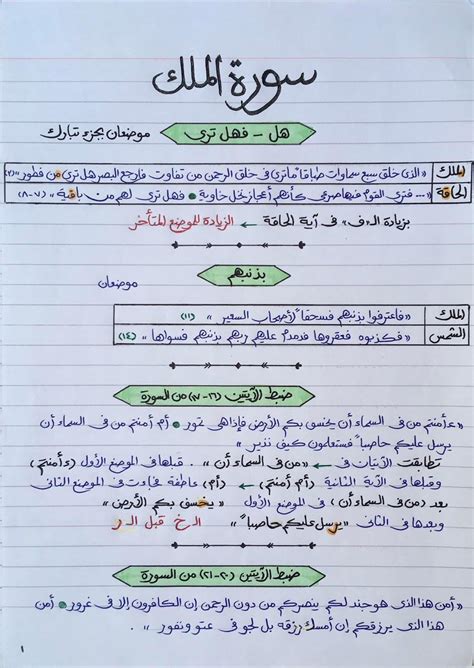 سورة الملك
هل - فهل ترى موضعان بجزء تبارك
الملك «الذى خلق سبع سماوات طباقا ما ترى فى خلق الرحمن من تفاوت فارجع البصر هل ترى من فطور» (٣)
الحاقة «... فترى القوم فيها صرعى كأنهم أعجاز نخل خاوية • فهل ترى لهم من باقية» (٧-٨)
بزيادة الـ «ف» فى آية الحاقة ← الزيادة للموضع المتأخر
بذنبهم
موضعان
الملك «فاعترفوا بذنبهم فسحقاً لأصحاب السعير» (١١)
الشمس «فكذبوه فعقروها فدمدم عليهم ربهم بذنبهم فسواها» (١٤)
ضبط الآيتين (١٦-١٧) من السورة
«ءأمنتم من فى السماء أن يخسف بكم الأرض فإذا هى تمور • أم أمنتم من فى السماء أن
يرسل عليكم حاصباً فستعلمون كيف نذير»
تطابقت الآيتان فى ← «من فى السماء أن»، قبلها فى الموضع الأول (ءأمنتم)
وقبلها فى الآية الثانية (أم أمنتم) ← (أم) عاطفة فجاءت فى الموضع الثانى
بعد (من فى السماء أن) فى الموضع الأول «يخسف بكم الأرض»
وبعدها فى الثانى «يرسل عليكم حاصباً» الـ خ قبل الـ ر
ضبط الآيتين (٢٠-٢١) من السورة
«أمن هذا الذى هو جند لكم ينصركم من دون الرحمن إن الكافرون إلا فى غرور • أمن
هذا الذى يرزقكم إن أمسك رزقه بل لجوا فى عتو ونفور»
١